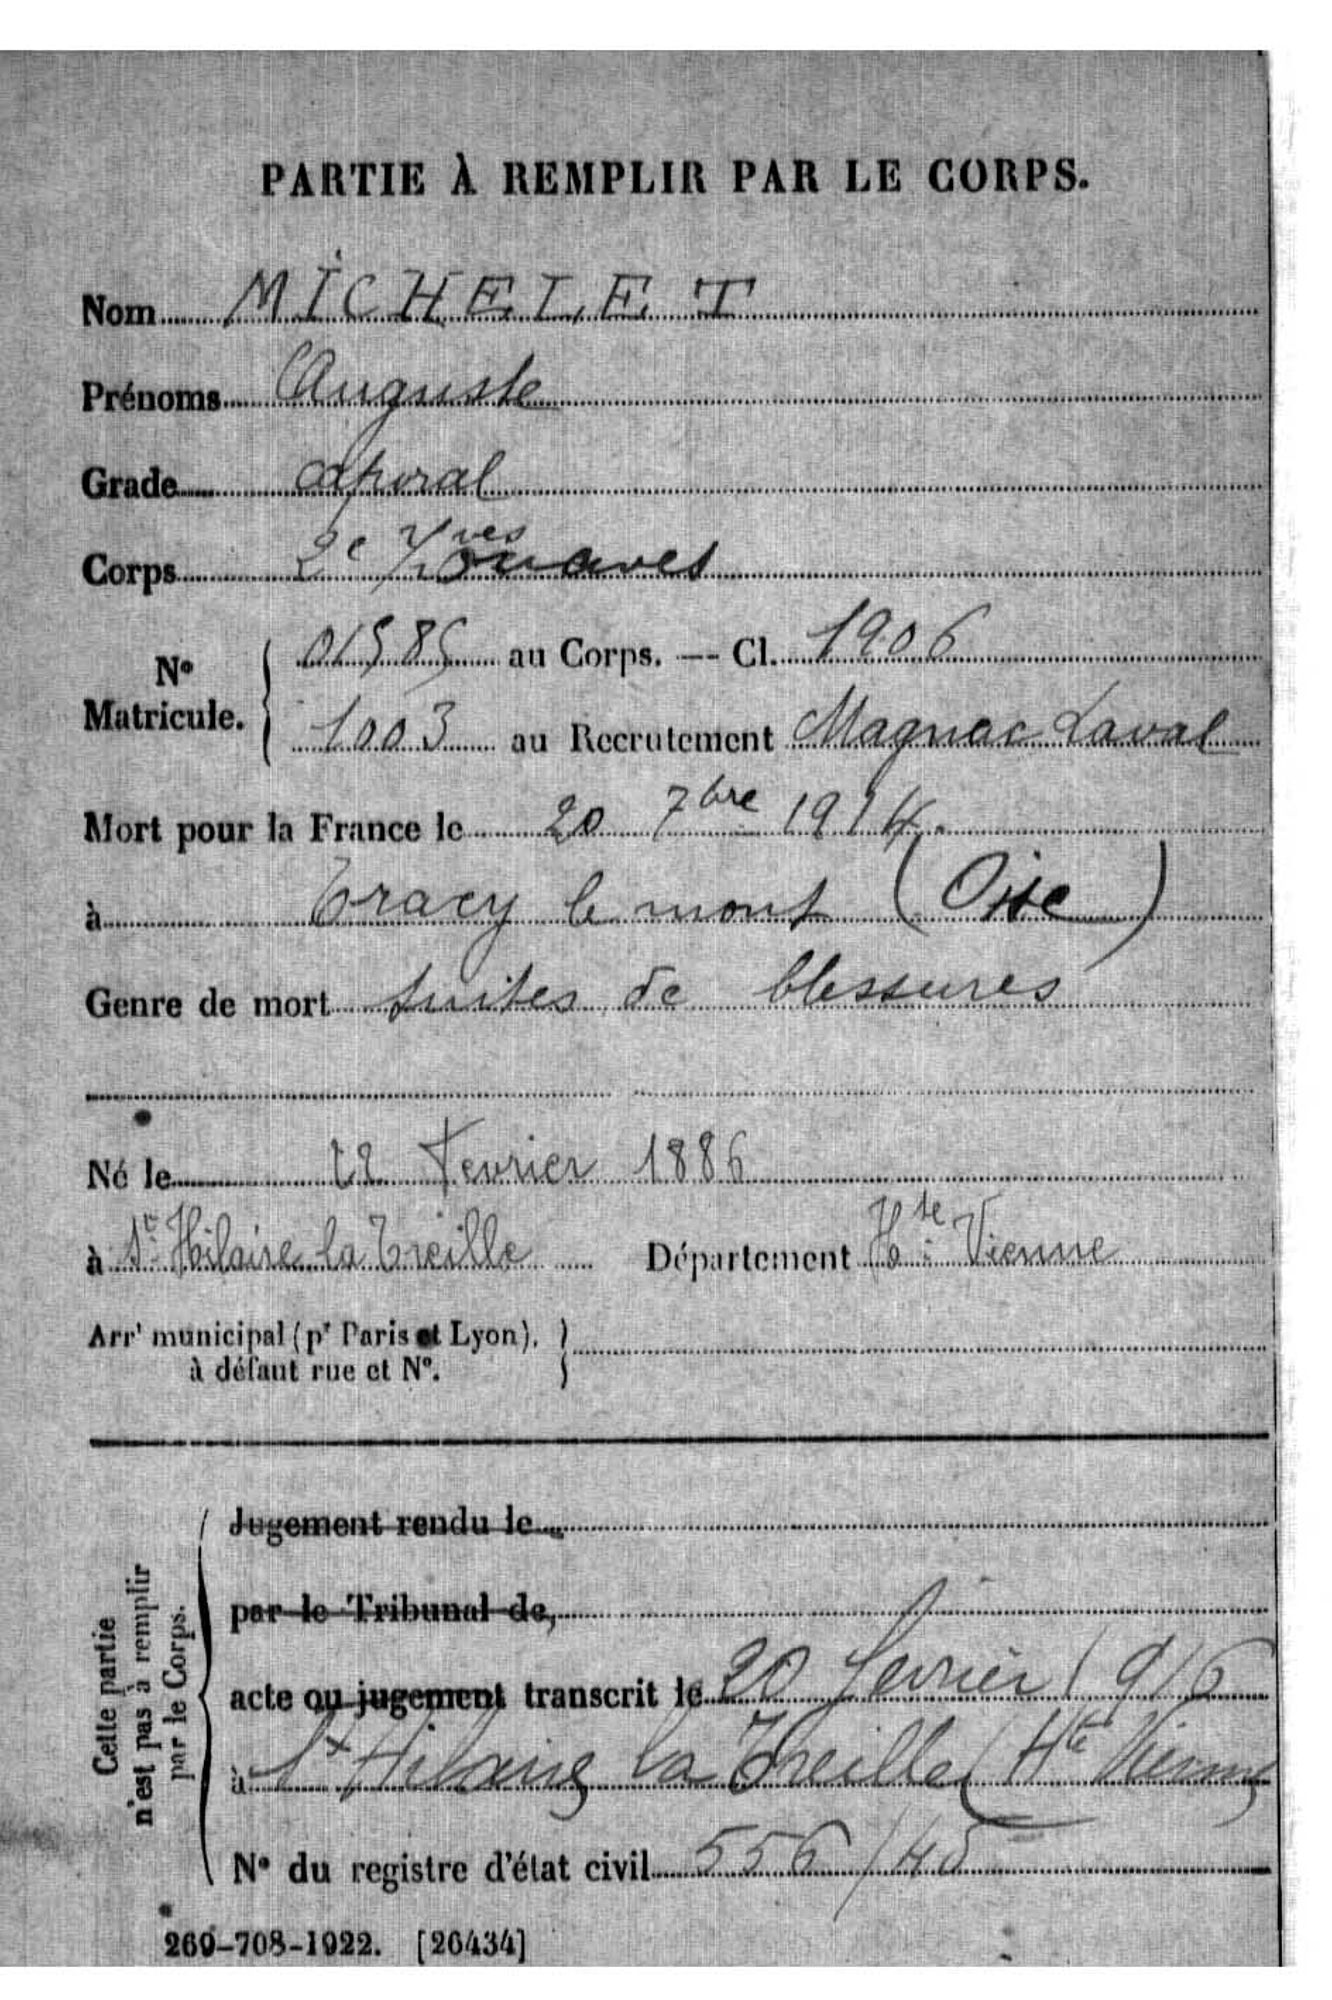 PARTIE À REMPLIR PAR LE CORPS.
Nom MICHELET
Prénoms Auguste
Grade caporal
Corps 2e Zouaves
N° Matricule. 01585 au Corps. — Cl. 1906
1003 au Recrutement Magnac Laval
Mort pour la France le 20 7bre 1914.
à Tracy le mont (Oise)
Genre de mort suites de blessures
Né le 22 Fevrier 1886
à St Hilaire la Treille Département Hte Vienne
Arrt municipal (pr Paris et Lyon),
à défaut rue et N°.
Cette partie
n'est pas à remplir
par le Corps.
Jugement rendu le
par le Tribunal de,
acte ou jugement transcrit le 20 février 1916
à St Hilaire la Treille (Hte Vienne)
N° du registre d'état civil 556/45
269-708-1922. [26434]